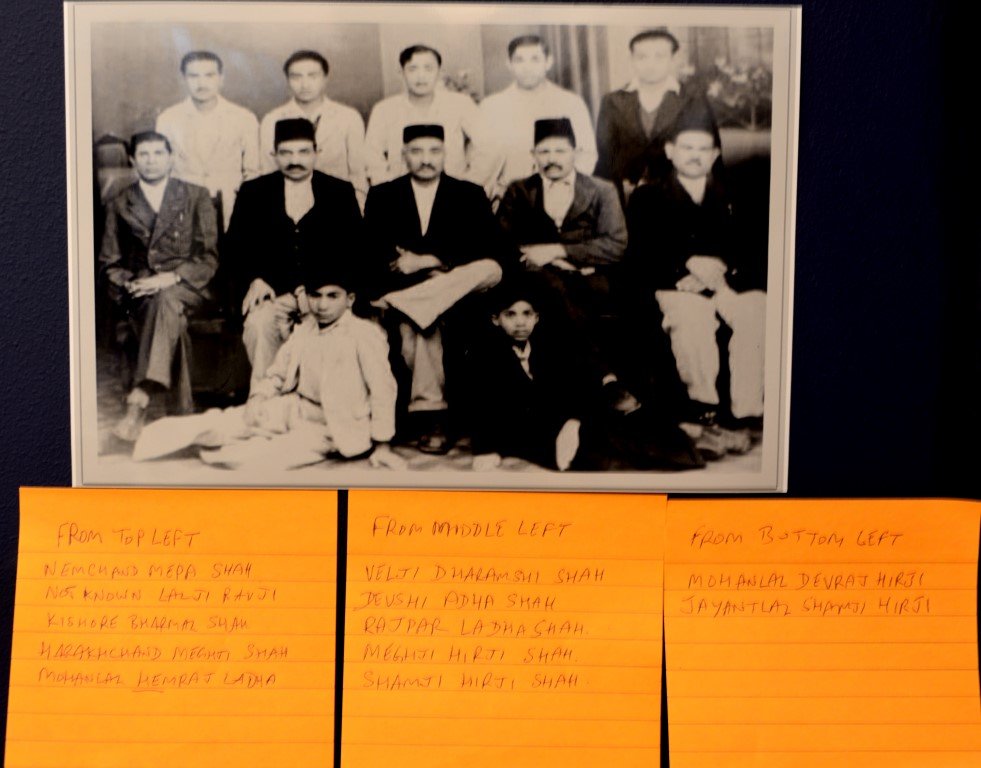 FROM TOP LEFT
NEMCHAND MEPA SHAH
NOT KNOWN LALJI RAVJI
KISHORE BHARMAL SHAH
HARAKHCHAND MEGHJI SHAH
MOHANLAL HEMRAJ LADHA
FROM MIDDLE LEFT
VELJI DHARAMSHI SHAH
DEVSHI ADHA SHAH
RAJPAR LADHA SHAH.
MEGHJI HIRJI SHAH.
SHAMJI HIRJI SHAH.
FROM BOTTOM LEFT
MOHANLAL DEVRAJ HIRJI
JAYANTLAL SHAMJI HIRJI